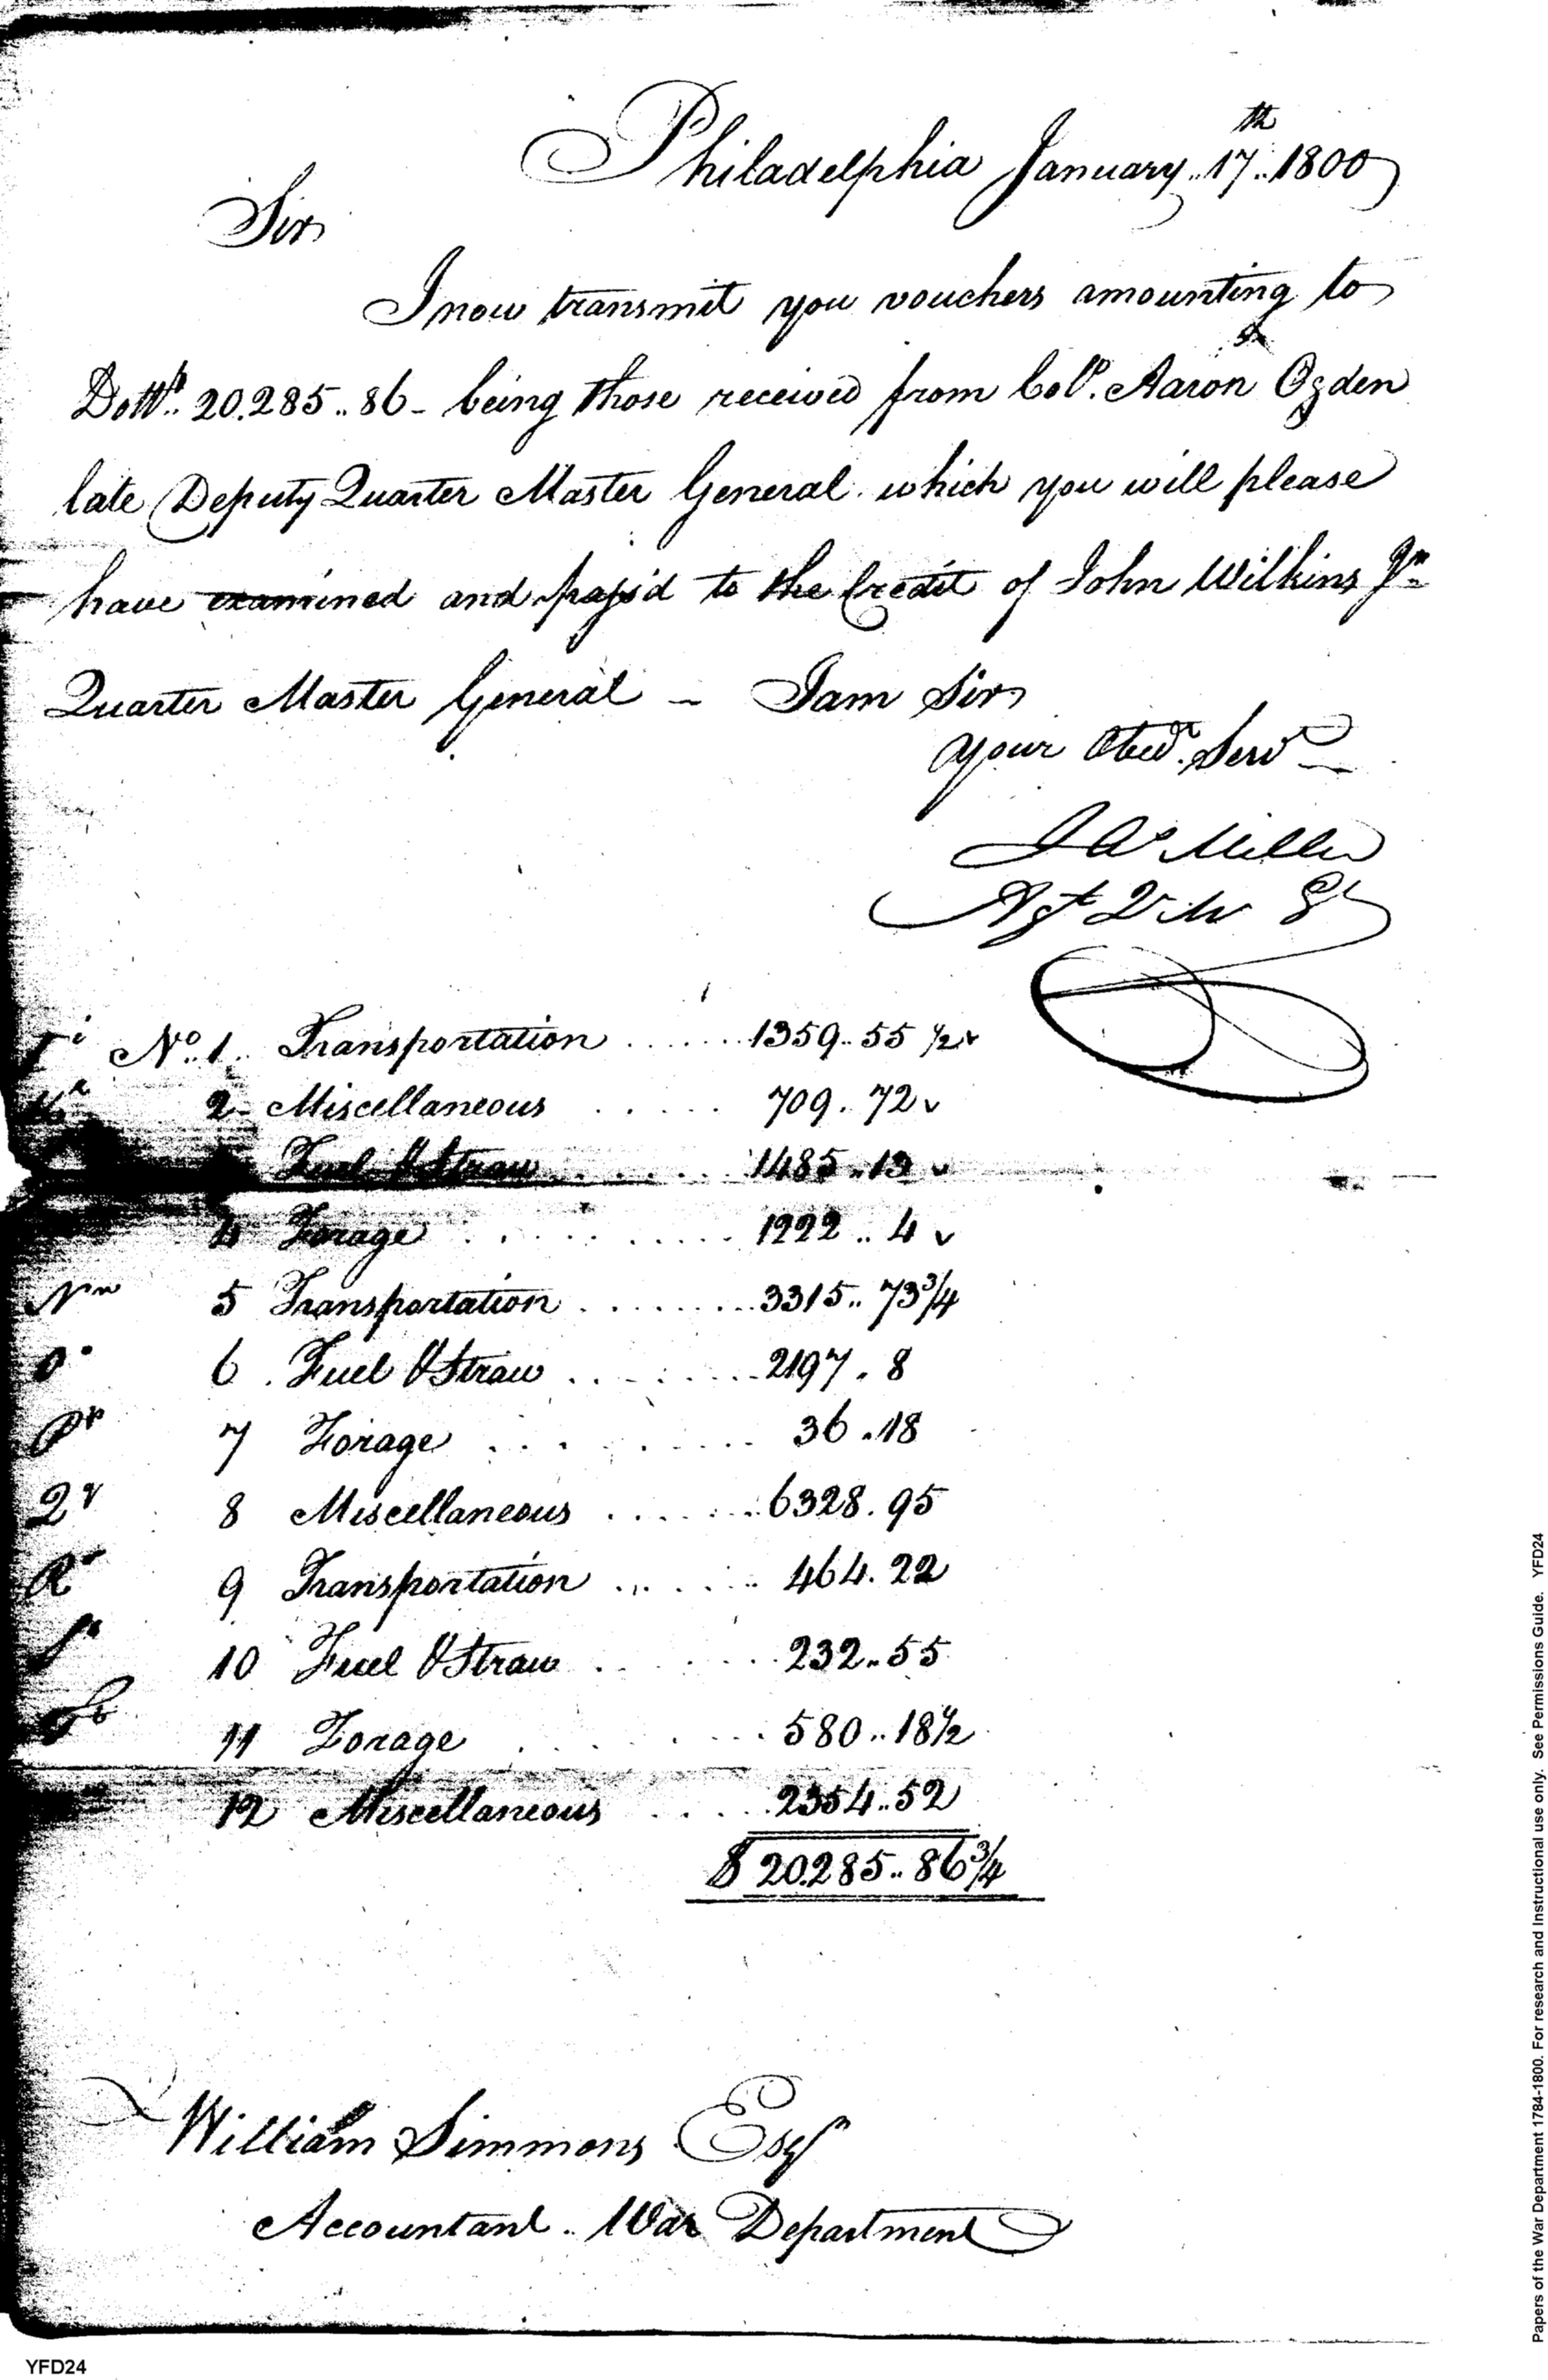 Philadelphia January..17th..1800
Sir
I now transmit you vouchers amounting to
Dolls.. 20.285..86 - being those received from Colo. Aaron Ogden
late Deputy Quarter Master General. which you will please
have examined and pass'd to the Credit of John Wilkins Jr
Quarter Master General - I am Sir
your Obedt. Servt
Miller
Agt Q M Gl
No. 1. Transportation ...... 1359..55 1/2
2 Miscellaneous ..... 709. 72
Fuel & Straw ..... 1485..13
4 Forage ..... 1222..4
5 Transportation ....... 3315..73 3/4
6. Fuel & Straw ....... 2197.8
7 Forage ....... 36.18
Qr 8 Miscellaneous ...... 6328.95
9 Transportation ...... 464.22
10 Fuel & Straw ..... 232..55
11 Forage ..... 580..18 1/2
12 Miscellaneous .... 2354..52
$ 20.285..86 3/4
William Simmons Esqr
Accountant.. War Department
YFD24
Papers of the War Department 1784-1800. For research and Instructional use only. See Permissions Guide. YFD24